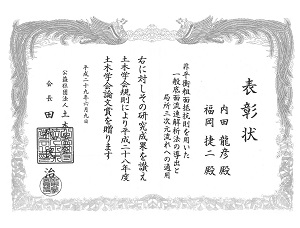 表彰状
内田龍彦殿
福岡捷二殿
非平衡粗面抵抗則を用いた
一般底面流速解析法の導出と
局所三次元流れへの適用
右に対しその研究成果を讃え
土木学会規則により平成二十八年度
土木学会論文賞を贈ります
平成二十九年六月九日
公益社団法人 土木
会長 田 治